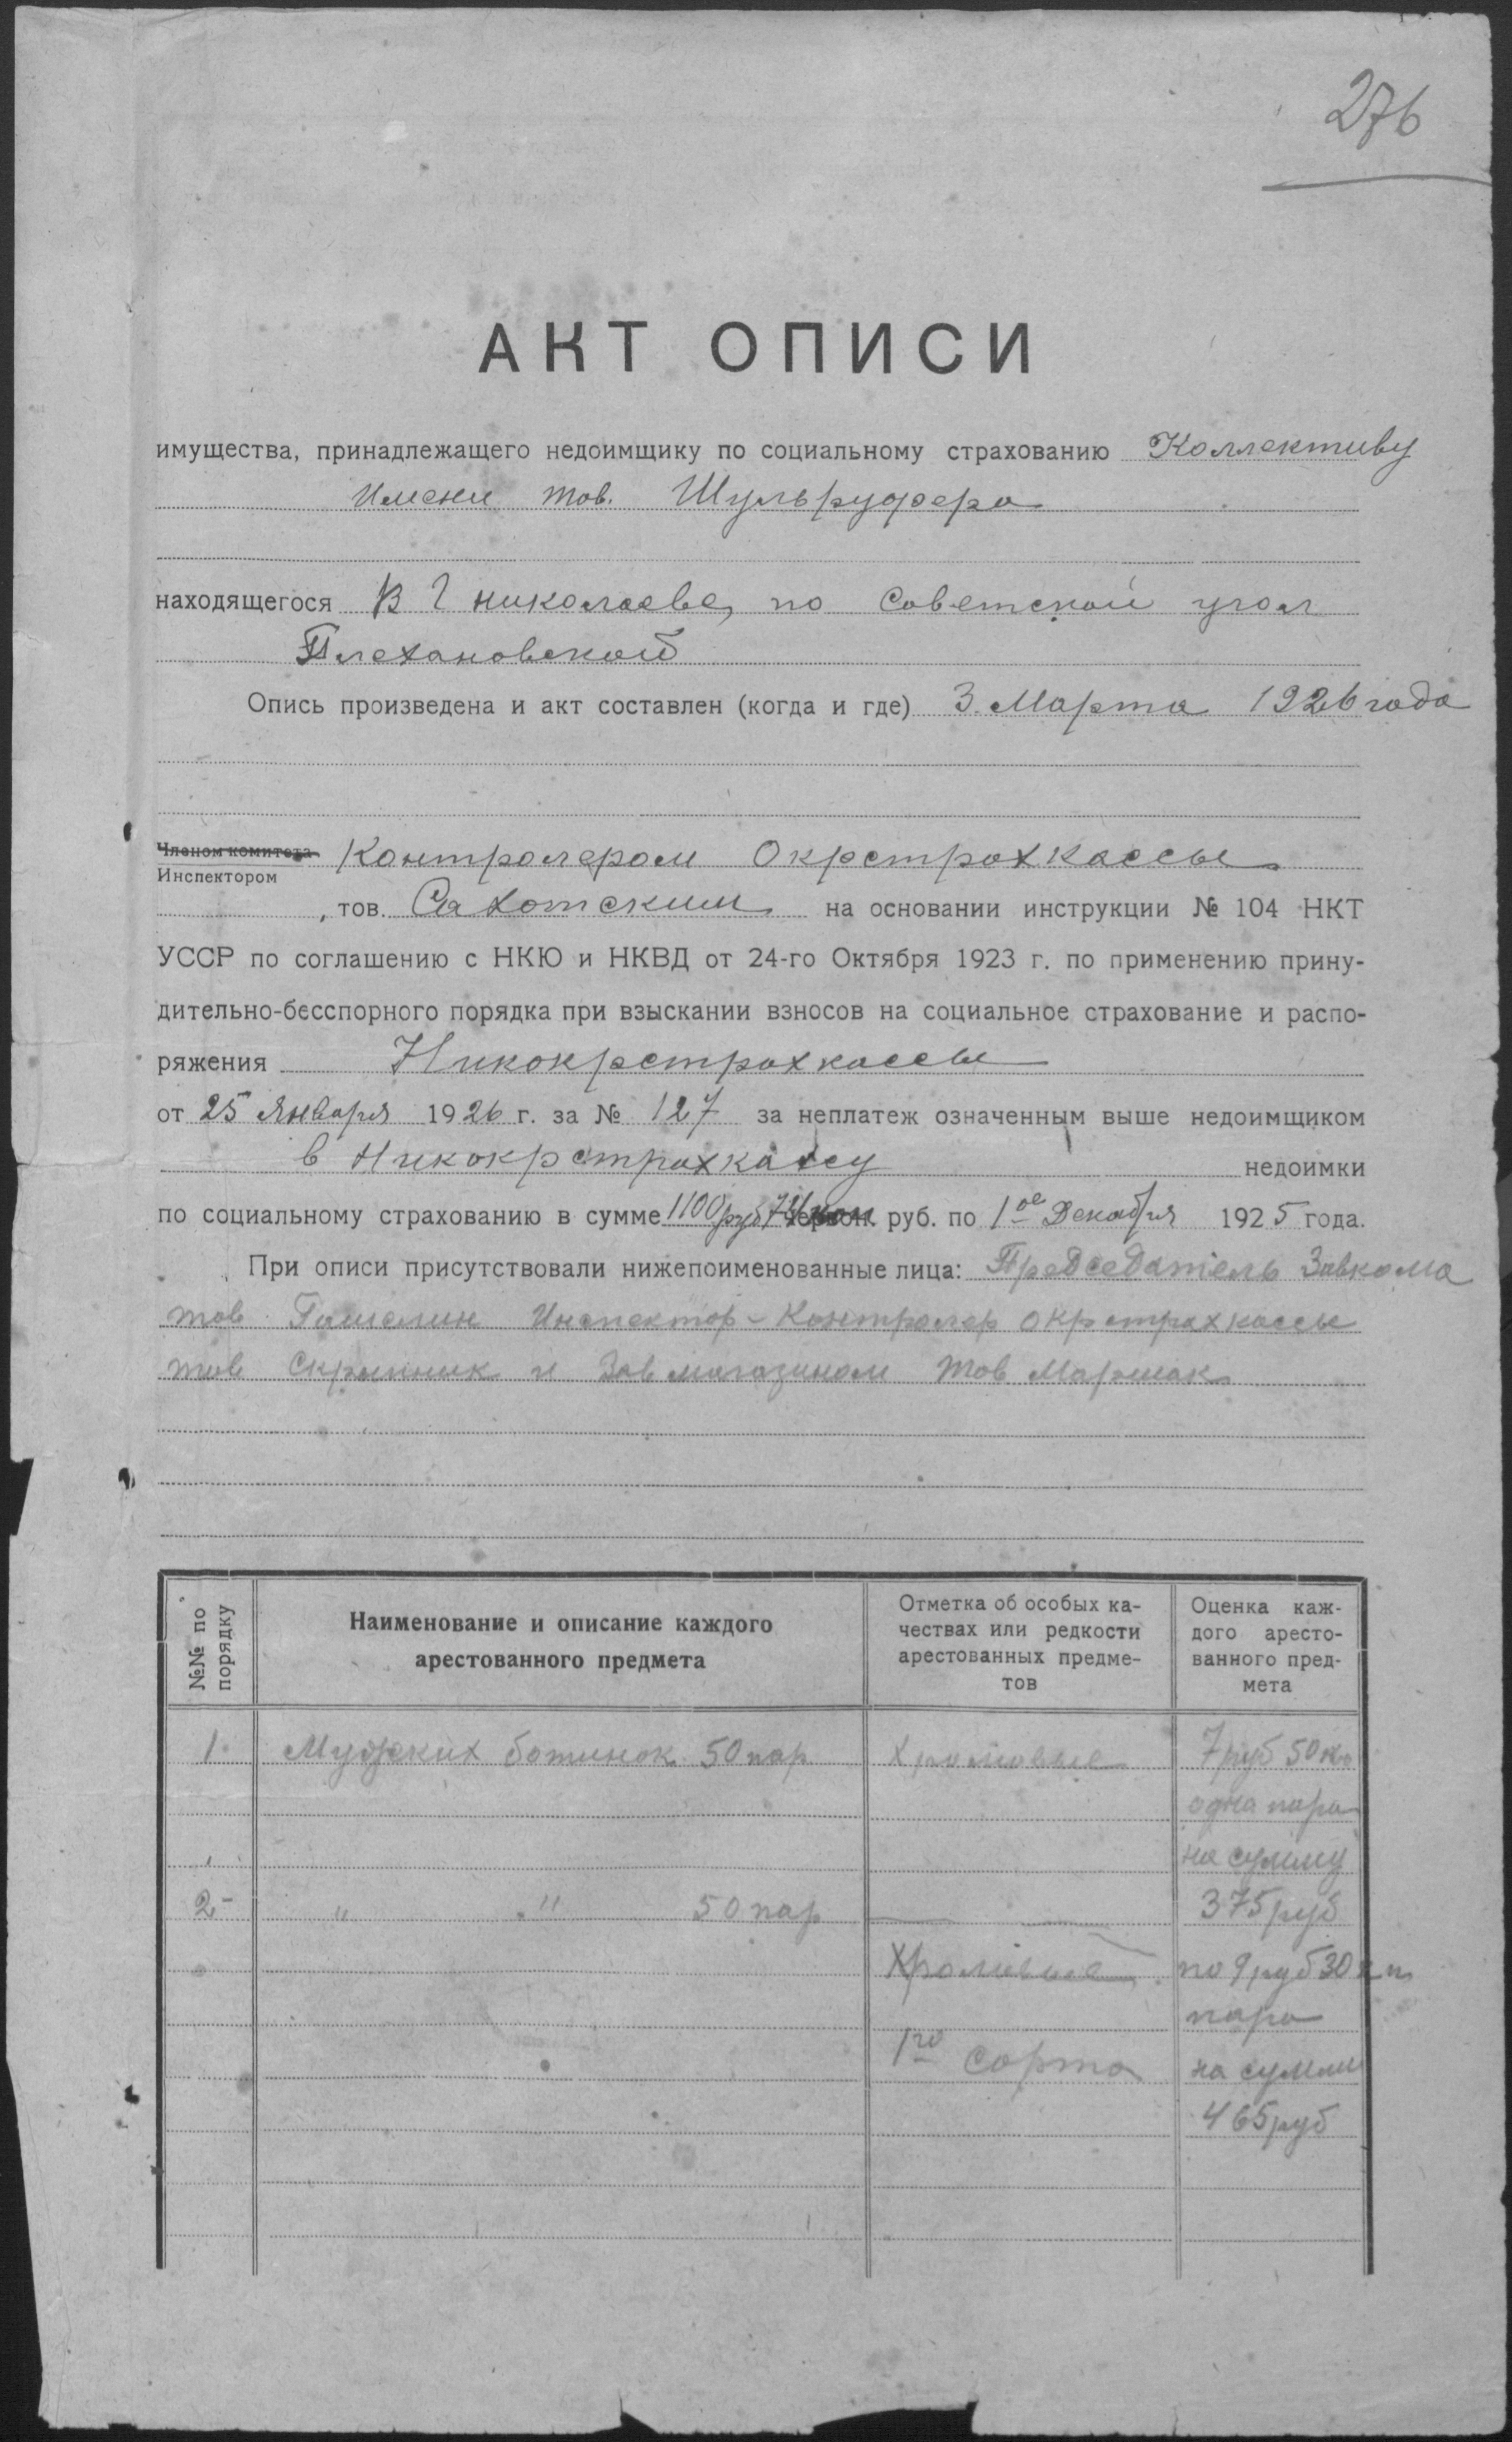 276
АКТ ОПИСИ
имущества, принадлежащего недоимщику по социальному страхованию Коллективу
Имени тов. Шульруфера
находящегося В г николаеве, по Советской угол
Плехановской
Опись произведена и акт составлен (когда и где) 3. Марта 1926 года
Членом комитета Контролером Окрстрахкассы
Инспектором
, тов. Сахотским на основании инструкции № 104 НКТ
УССР по соглашению с НКЮ и НКВД от 24-го Октября 1923 г. по применению прину-
дительно-бесспорного порядка при взыскании взносов на социальное страхование и распо-
ряжения Никокрстрахкассы
от 25 Января 1926 г. за № 127 за неплатеж означенным выше недоимщиком
в Никокрстрахкассу недоимки
по социальному страхованию в сумме 1100 руб 74 коп червон. руб. по 1ое Декабря 1925 года.
При описи присутствовали нижепоименованные лица: Председатель Завкома
тов Инспектор-Контролер окрстрахкассы
тов Скрыпник и Зав магазином тов Маршак
№№ по порядку
Наименование и описание каждого
арестованного предмета
Отметка об особых ка-
чествах или редкости
арестованных предме-
тов
Оценка каж-
дого аресто-
ванного пред-
мета
1. Мужских ботинок 50 пар Хромовые 7 руб 50 к
одна пара
на сумму
2- " " 50 пар 375 руб
Хромовые по 9 руб 30 к п
пара
1го сорта на сумму
465 руб